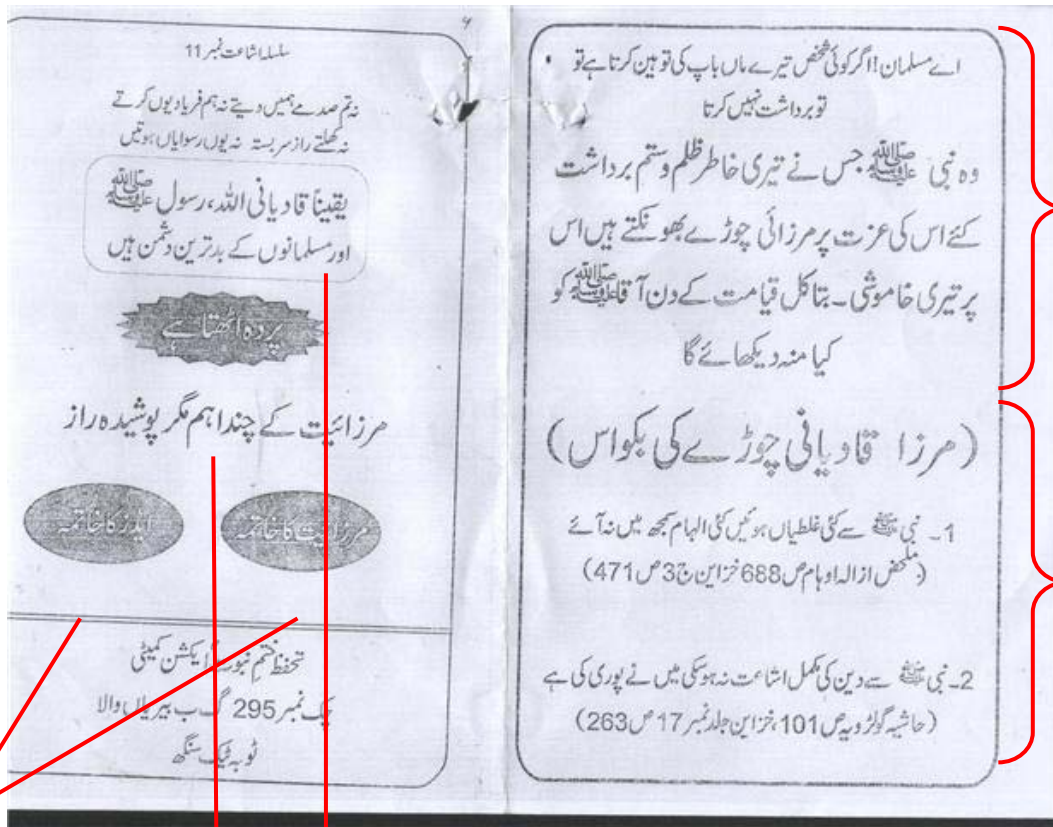 اے مسلمان !اگر کوئی شخص تیرے ماں باپ کی توہین کرتا ہے تو
تو برداشت نہیں کرتا
وہ نبی ﷺ جس نے تیری خاطر ظلم و ستم برداشت
کئے اس کی عزت پر مرزائی چوڑے بھونکتے ہیں اس
پر تیری خاموشی۔ بتا کل قیامت کے دن آقا ﷺ کو
کیا منہ دیکھائے گا
(مرزا قادیانی چوڑے کی بکواس)
1۔ نبی ﷺ سے کئی غلطیاں ہوئیں کئی الہام سمجھ میں نہ آئے
(ملخص ازالہ اوہام ص 688 خزاین ج 3 ص 471)
2۔ نبی ﷺ سے دین کی مکمل اشاعت نہ ہو سکی میں نے پوری کی ہے
(حاشیہ گولڑویہ ص 101، خزاین جلد نمبر 17 ص 263)
سلسلہ اشاعت نمبر 11
نہ تم صدمے ہمیں دیتے نہ ہم فریاد یوں کرتے
نہ کھلتے راز سربستہ نہ یوں رسوایاں ہوتیں
یقیناً قادیانی اللہ، رسول ﷺ
اور مسلمانوں کے بدترین دشمن ہیں
پردہ اٹھتا ہے
مرزائیت کے چند اہم مگر پوشیدہ راز
مرزائیت کا خاتمہ کا خاتمہ
تحفظ ختم نبوت ایکشن کمیٹی
چک نمبر 295 گ ب بیریاں والا
ٹوبہ ٹیک سنگھ